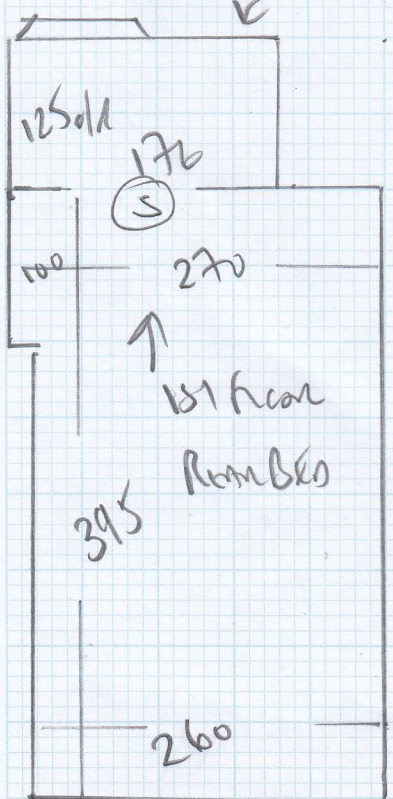 125 o/a
176
S
100
270
1st Floor
Rear Bed
395
260